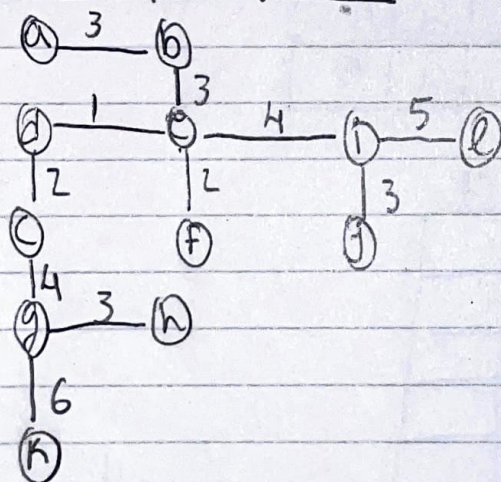 a 3 b
3
d 1 e 4 i 5 l
2 2 3
c f j
4
g 3 h
6
k